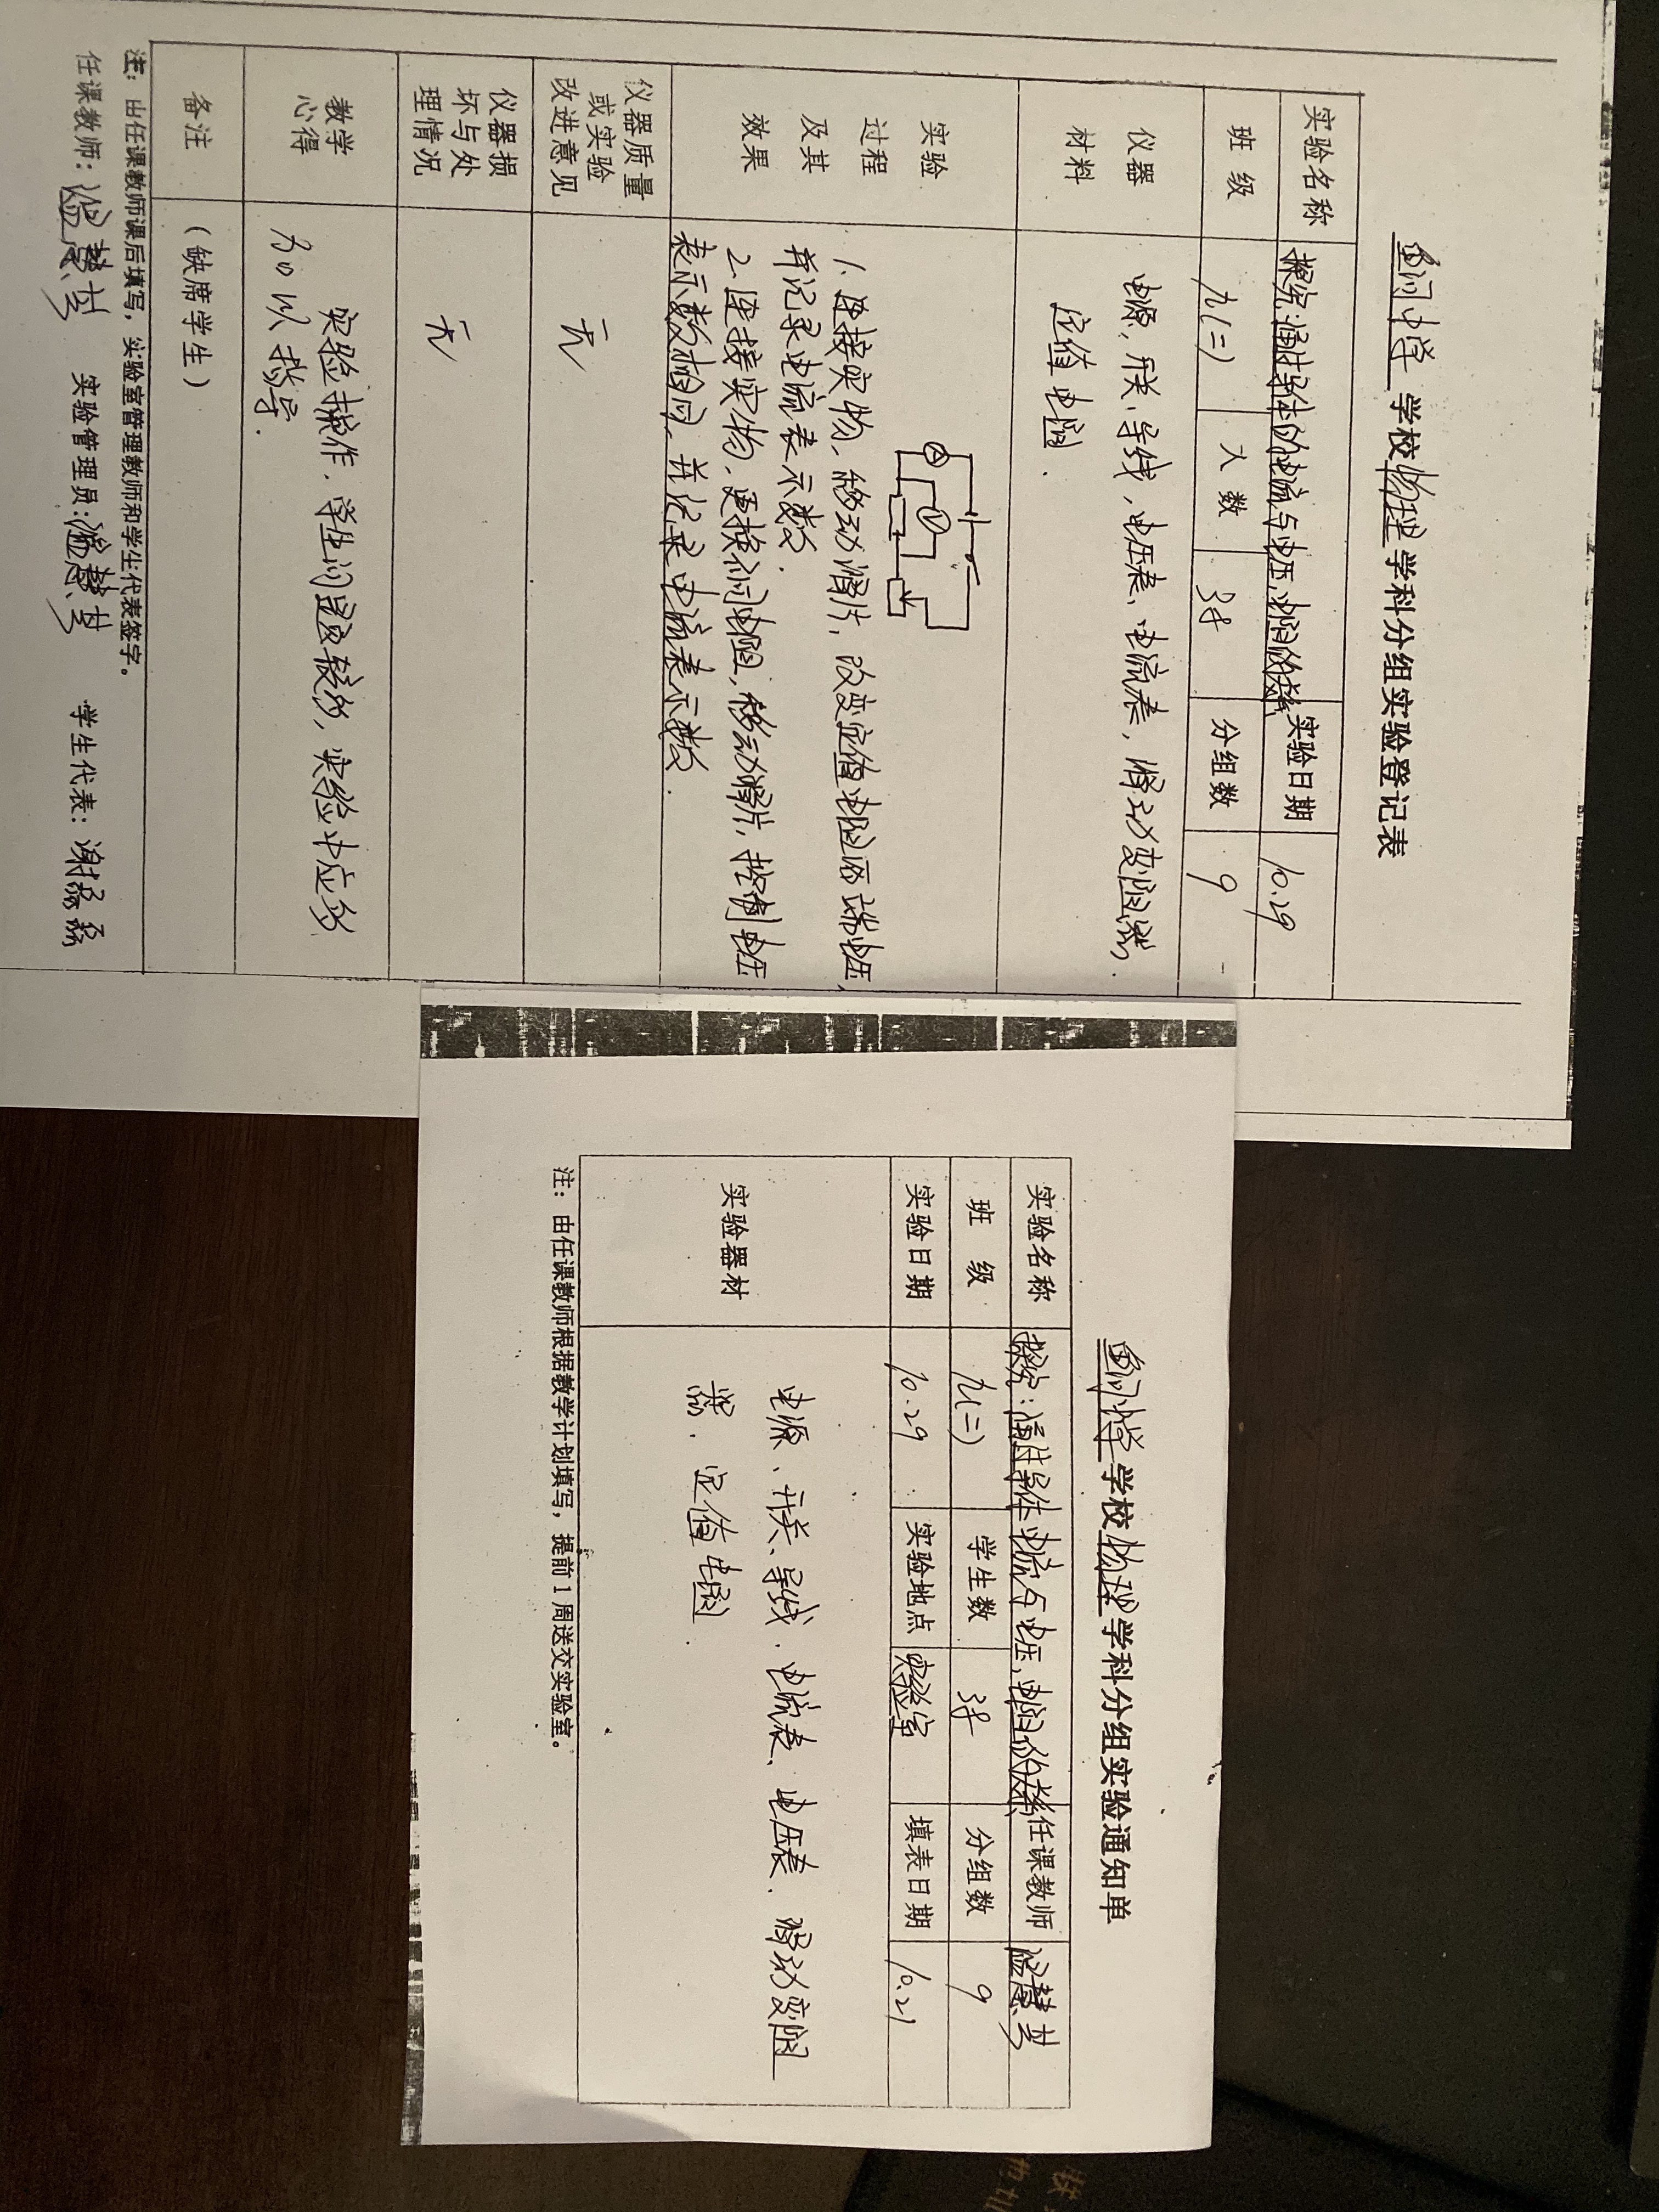 鱼河中学 学校 物理 学科分组实验登记表
实验名称 探究:通过导体的电流与电压、电阻的关系 实验日期 10.29
班 级 九(二) 人 数 38 分组数 9
仪器
材料
电源, 开关, 导线, 电压表, 电流表, 滑动变阻器.
定值电阻.
实验
过程
及其
效果
A
V
1. 连接实物, 移动滑片, 改变定值电阻两端电压,
并记录电流表示数.
2. 连接实物, 更换不同电阻, 移动滑片, 控制电压
表示数相同, 并记录电流表示数.
仪器质量
或实验
改进意见
无
仪器损
坏与处
理情况
无
教学
心得
实验操作, 学生问题较多, 实验中应多
加以指导.
备注
(缺席学生)
注:由任课教师课后填写,实验室管理教师和学生代表签字。
任课教师: 实验管理员: 学生代表:
鱼河中学 学校 物理 学科分组实验通知单
实验名称 探究:通过导体电流与电压、电阻的关系 任课教师
班 级 九(二) 学生数 38 分组数 9
实验日期 10.29 实验地点 实验室 填表日期 10.21
实验器材
电源、开关、导线、电流表、电压表、滑动变阻
器、定值电阻.
注:由任课教师根据教学计划填写,提前1周送交实验室。